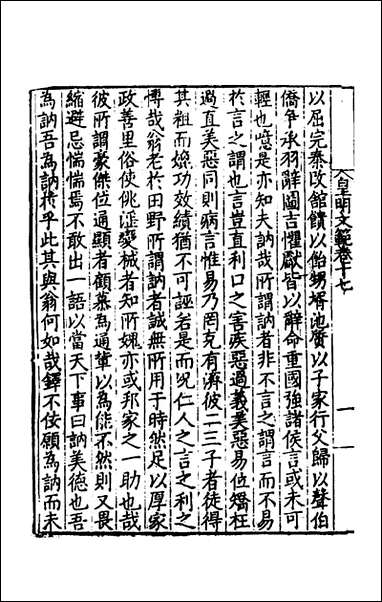 皇明文範卷十七
一
以屈完秦改館饋以飴甥壻池質以子家行父歸以聲伯
僑爭承羽辭圖吉懼獻皆以辭命重國強諸侯言或未可
輕也噫是亦知夫訥哉所謂訥者非不言之謂言而不易
於言之謂也言豈直利口之害疾惡過義美惡易位矯枉
過直美惡同則病言惟易乃罔克有濟彼二三子者徒得
其粗而煥功效績猶不可誣若是而况仁人之言之利之
博哉翁老於田野所謂訥者誠無所用于時然足以厚家
政善里俗使佻滙變械者知所媿亦或邦家之一助也哉
彼所謂豪傑位通顯者顧慕為通輩以為能不然則又畏
縮避忌惴惴焉不敢出一語以當天下事曰訥美德也吾
為訥吾為訥於乎此其與翁何如哉鐸不佞願為訥而未